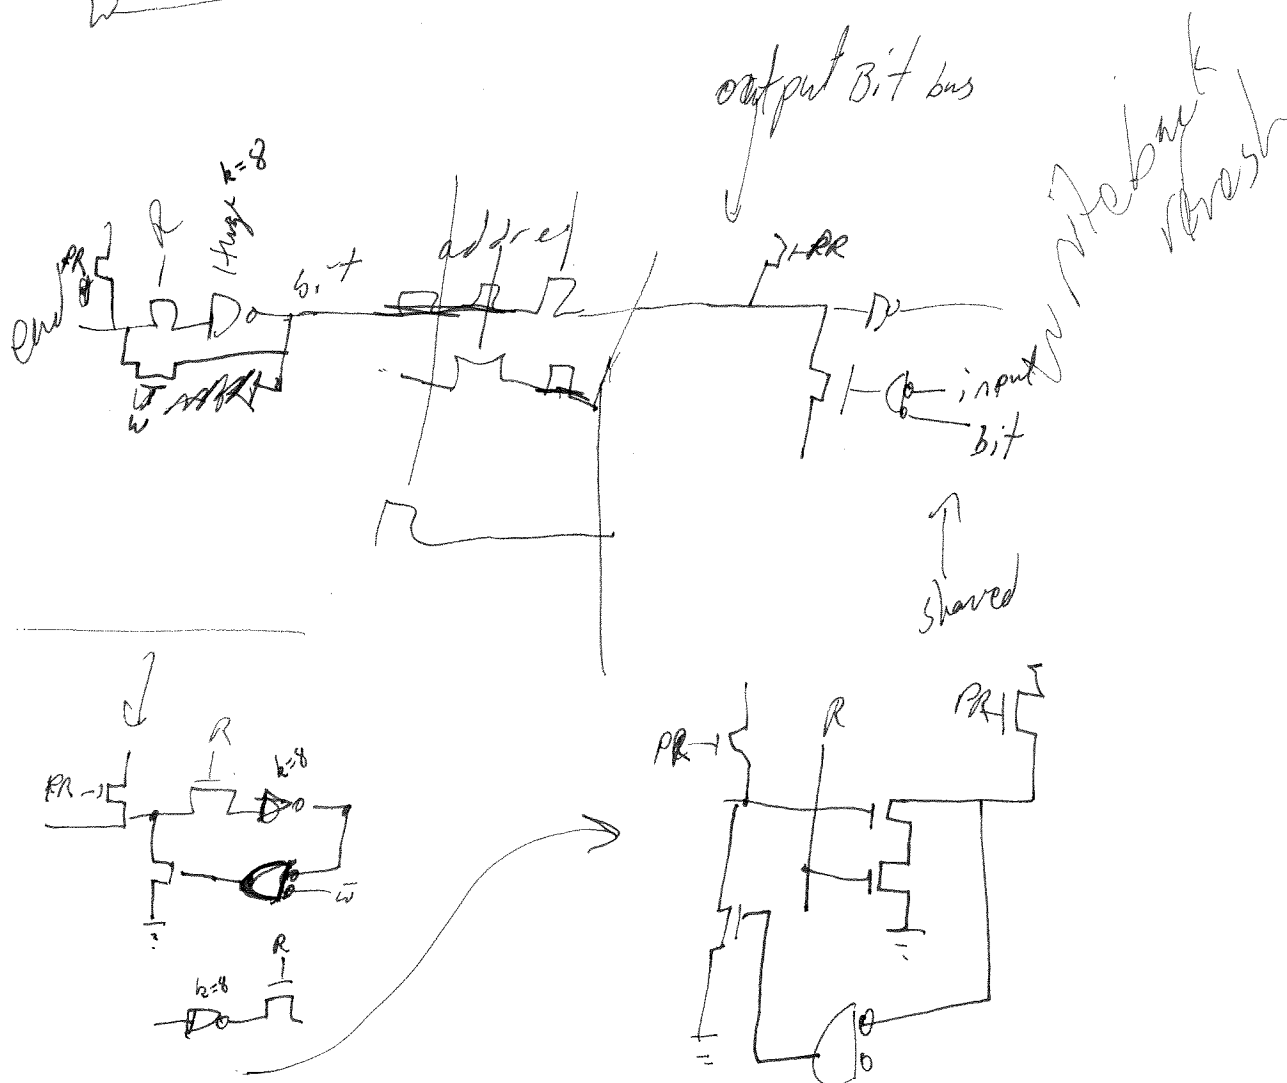 output Bit bus
writeback
refresh
k=8
Huge
R
PR
end
bit
address
PR
input
Bit
W
shared
R
k=8
PR
W
R
k=8
PR
R
PR